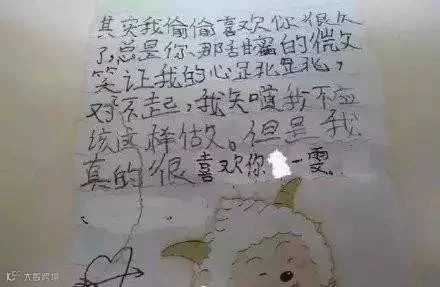 其实我偷偷喜欢你很久
了,总是你那甜蜜的微
笑让我的心 ,
对不起,我知道我不应
该这样做。但是我
真的很喜欢你 一雯
大数跨境